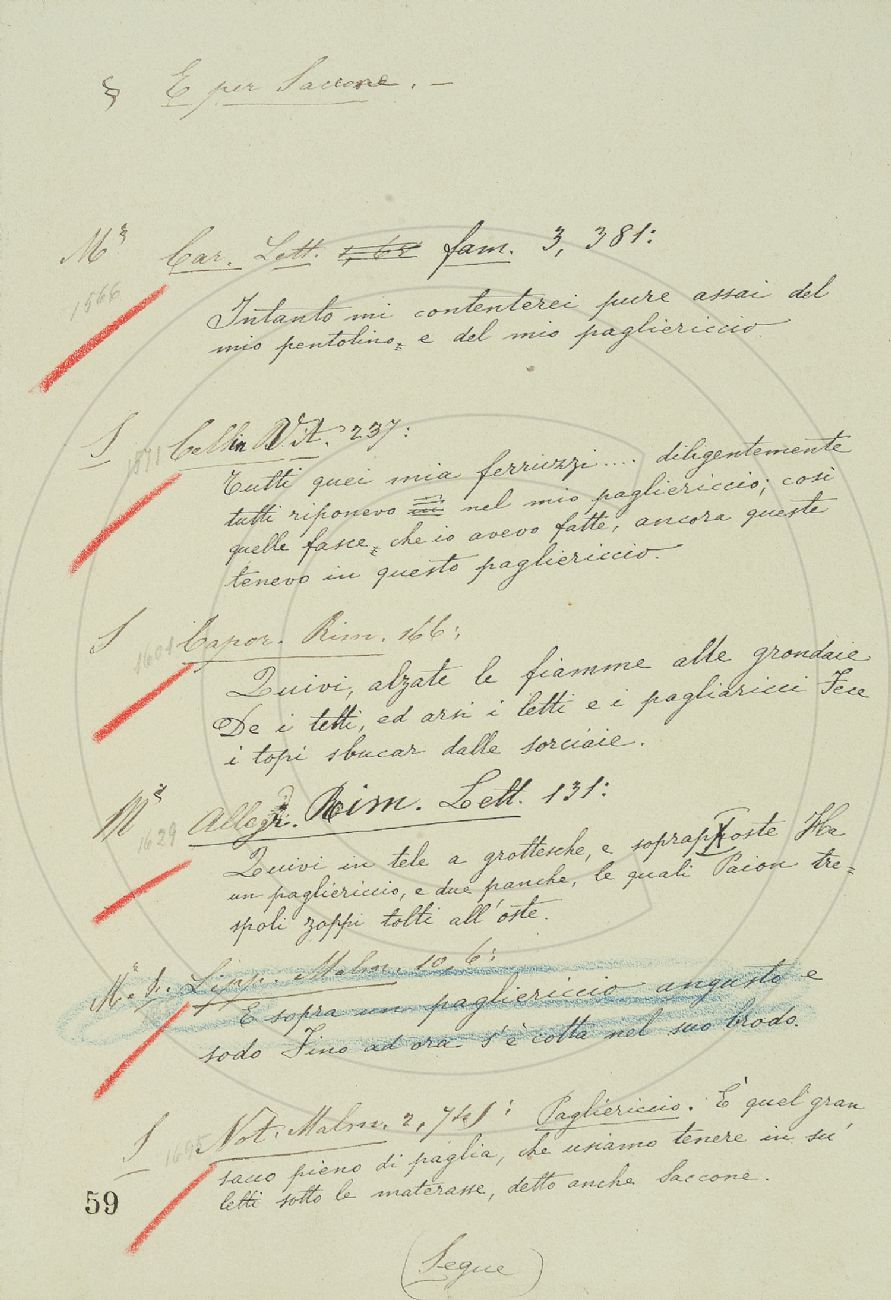 § E per Saccone. —
Mª Car. Lett. fam. 3, 381:
1566
Intanto mi contenterei pure assai del
mio pentolino, e del mio pagliericcio
S Cellin Vit. 237:
1571
Tutti quei mia ferruzzi.... diligentemente
tutti riponevo nel mio pagliericcio; così
quelle fasce, che io avevo fatte, ancora queste
tenevo in questo pagliericcio.
S Capor. Rim. 166:
1601
Quivi, alzate le fiamme alle grondaie
De i tetti, ed arsi i letti e i pagliaricci Fece
i topi sbucar dalle sorciaie.
Mª Allegr. Rim. Lett. 131:
1629
Quivi in tele a grottesche, e soprapposte Ha
un pagliericcio, e due panche, le quali Paion tre=
spoli zoppi tolti all'oste.
Mª S. Lipp. Malm. 10, 6:
E sopra un pagliericcio angusto e
sodo Fino ad ora s'è cotta nel suo brodo.
S Not. Malm. 2, 741: Pagliericcio. È quel gran
1695
sacco pieno di paglia, che usiamo tenere in su'
letti sotto le materasse, detto anche Saccone.
59
(Segue)